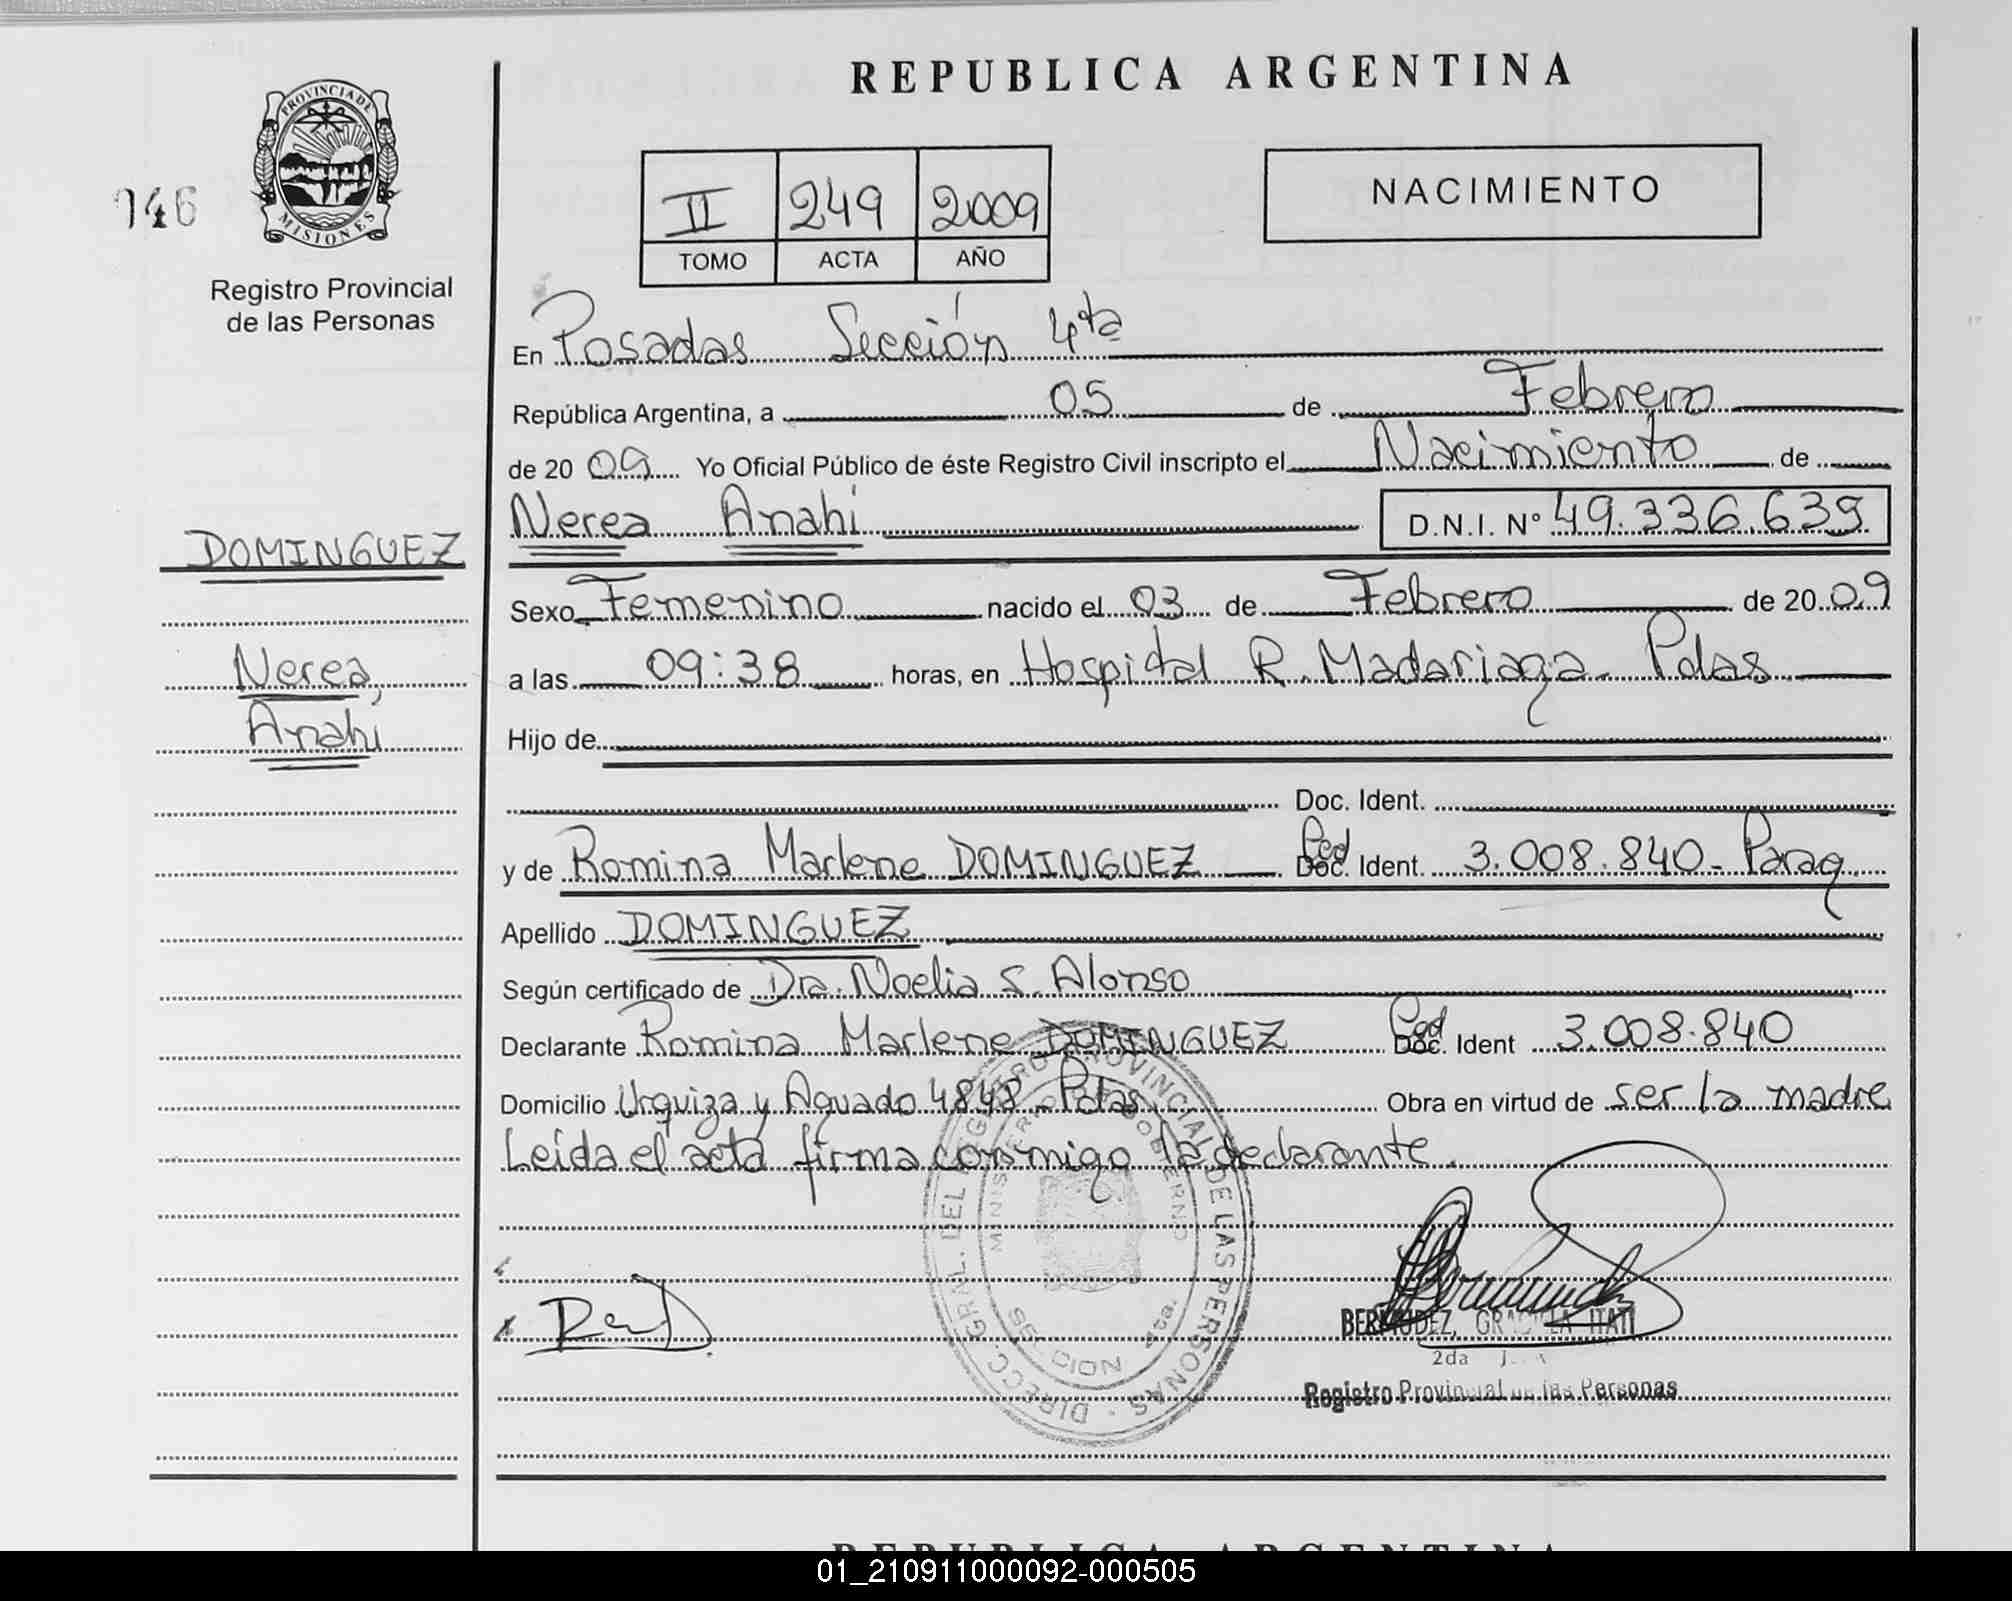 REPUBLICA ARGENTINA
PROVINCIA DE
MISIONES
146
Registro Provincial
de las Personas
II 249 2009
TOMO ACTA AÑO
NACIMIENTO
En Posadas Sección 4ta
República Argentina, a 05 de Febrero
de 20 09 Yo Oficial Público de éste Registro Civil inscripto el Nacimiento de
Nerea Anahi D.N.I. Nº 49.336.639
DOMINGUEZ
Nerea,
Anahi
Sexo Femenino nacido el 03 de Febrero de 20 09
a las 09:38 horas, en Hospital R. Madariaga - Pdas
Hijo de
Doc. Ident.
y de Romina Marlene DOMINGUEZ Ced Doc. Ident. 3.008.840 - Parag
Apellido DOMINGUEZ
Según certificado de Dra. Noelia S. Alonso
Declarante Romina Marlene DOMINGUEZ Ced Doc. Ident 3.008.840
Domicilio Urquiza y Aguado 4848 - Pdas Obra en virtud de ser la madre
Leída el acta firma conmigo la declarante.
DIRECC. GRAL. DEL REGISTRO PROVINCIAL DE LAS PERSONAS
MINISTERIO DE GOBIERNO
SECCION 4ta.
BERMUDEZ, GRACIELA ITATI
2da
Registro Provincial de las Personas
REPUBLICA ARGENTINA
01_210911000092-000505